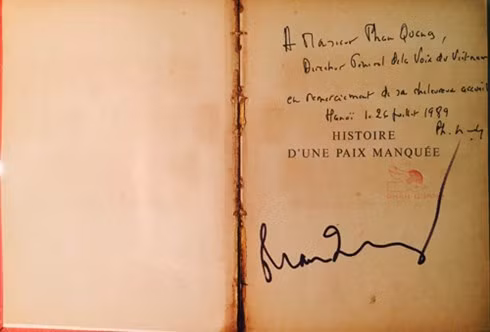 A Monsieur Phan Quang,
Directeur Général de la Voix du Vietnam
en remerciement de sa chaleureux accueil
Hanoï le 26 juillet 1989
HISTOIRE
D'UNE PAIX MANQUÉE